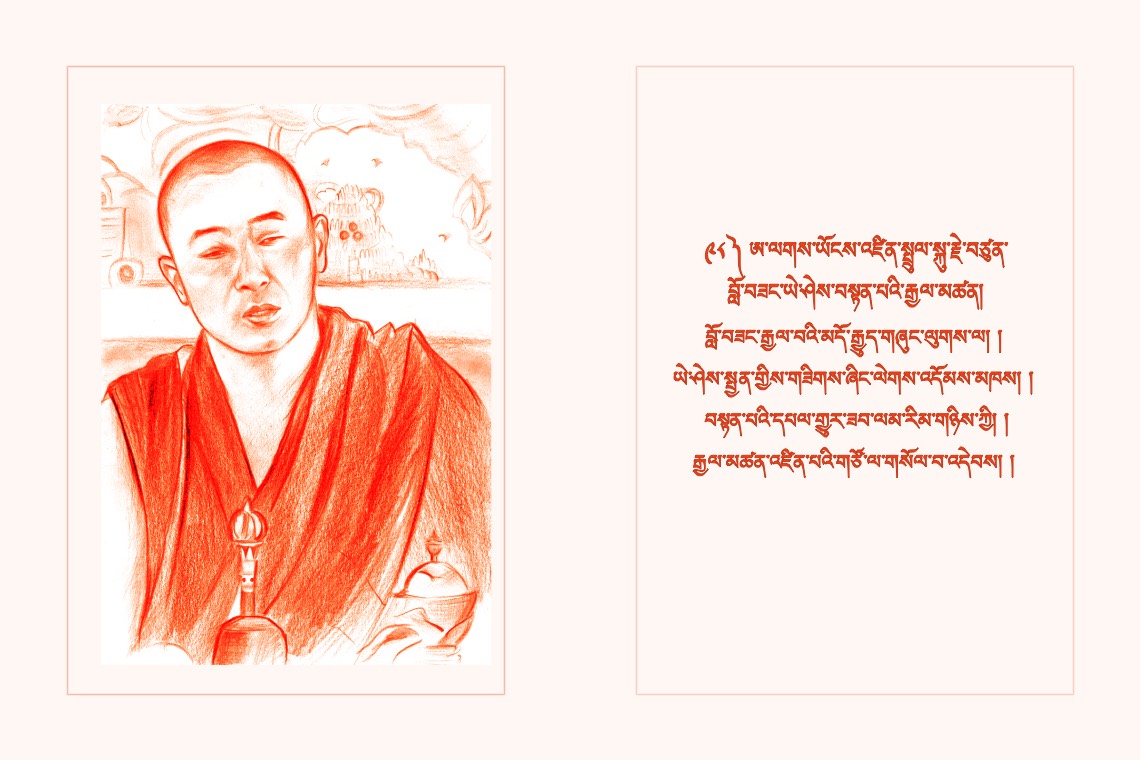 ༩༨༽ ཨ་ལགས་ཡོངས་འཛིན་སྤྲུལ་སྐུ་རྗེ་བཙུན་
བློ་བཟང་ཡེ་ཤེས་བསྟན་པའི་རྒྱལ་མཚན།
བློ་བཟང་རྒྱལ་བའི་མདོ་རྒྱུད་གཞུང་ལུགས་ལ། །
ཡེ་ཤེས་སྤྱན་གྱིས་གཟིགས་ཞིང་ལེགས་འདོམས་མཁས། །
བསྟན་པའི་དཔལ་གྱུར་ཟབ་ལམ་རིམ་གཉིས་ཀྱི། །
རྒྱལ་མཚན་འཛིན་པའི་གཙོ་ལ་གསོལ་བ་འདེབས། །